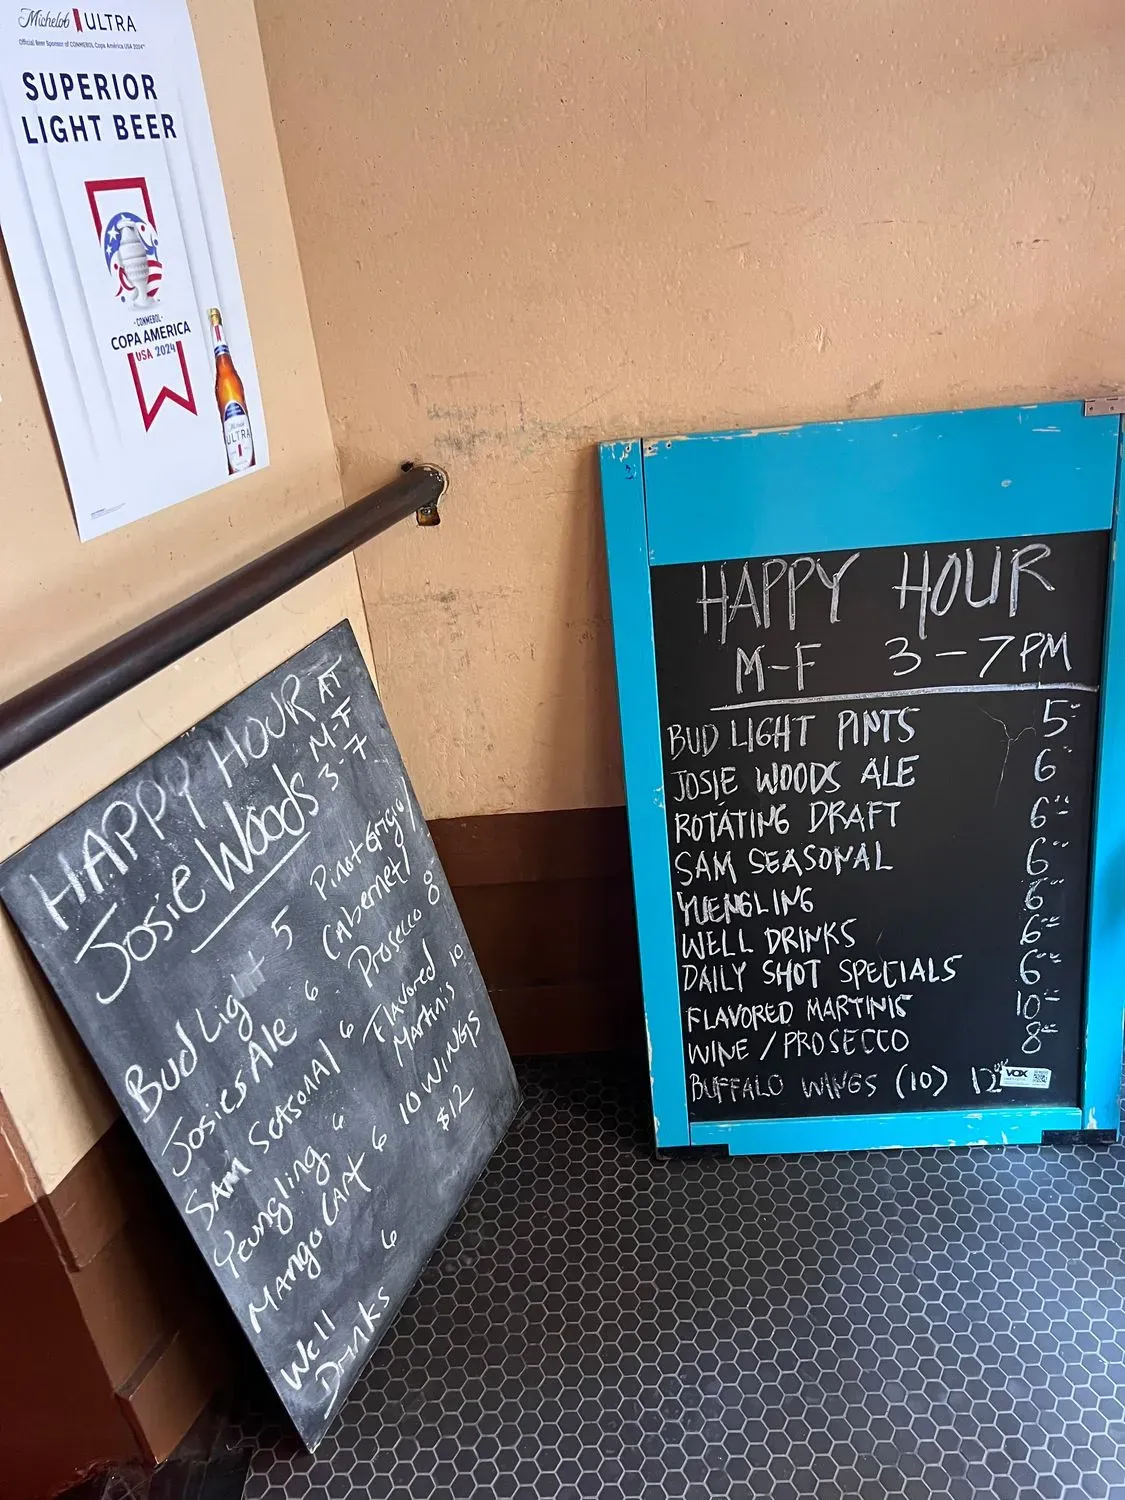 Michelob ULTRA
Official Beer Sponsor of CONMEBOL Copa América USA 2024™
SUPERIOR
LIGHT BEER
·CONMEBOL·
COPA AMERICA
USA 2024
ULTRA
HAPPY HOUR AT
Josie Woods M-F
3-7
Bud Light 5
Josies Ale 6
SAM SeasonAl 6
Yeungling 6
Mango CArt 6
Well
Drinks 6
Pinot Grigio
Cabernet
Prosecco 8
Flavored
Martinis 10
10 WINGS
$12
HAPPY HOUR
M-F 3-7PM
BUD LIGHT PINTS 5
JOSIE WOODS ALE 6
ROTATING DRAFT 6
SAM SEASONAL 6
YUENGLING 6
WELL DRINKS 6
DAILY SHOT SPECIALS 6
FLAVORED MARTINIS 10
WINE / PROSECCO 8
BUFFALO WINGS (10) 12
VOX